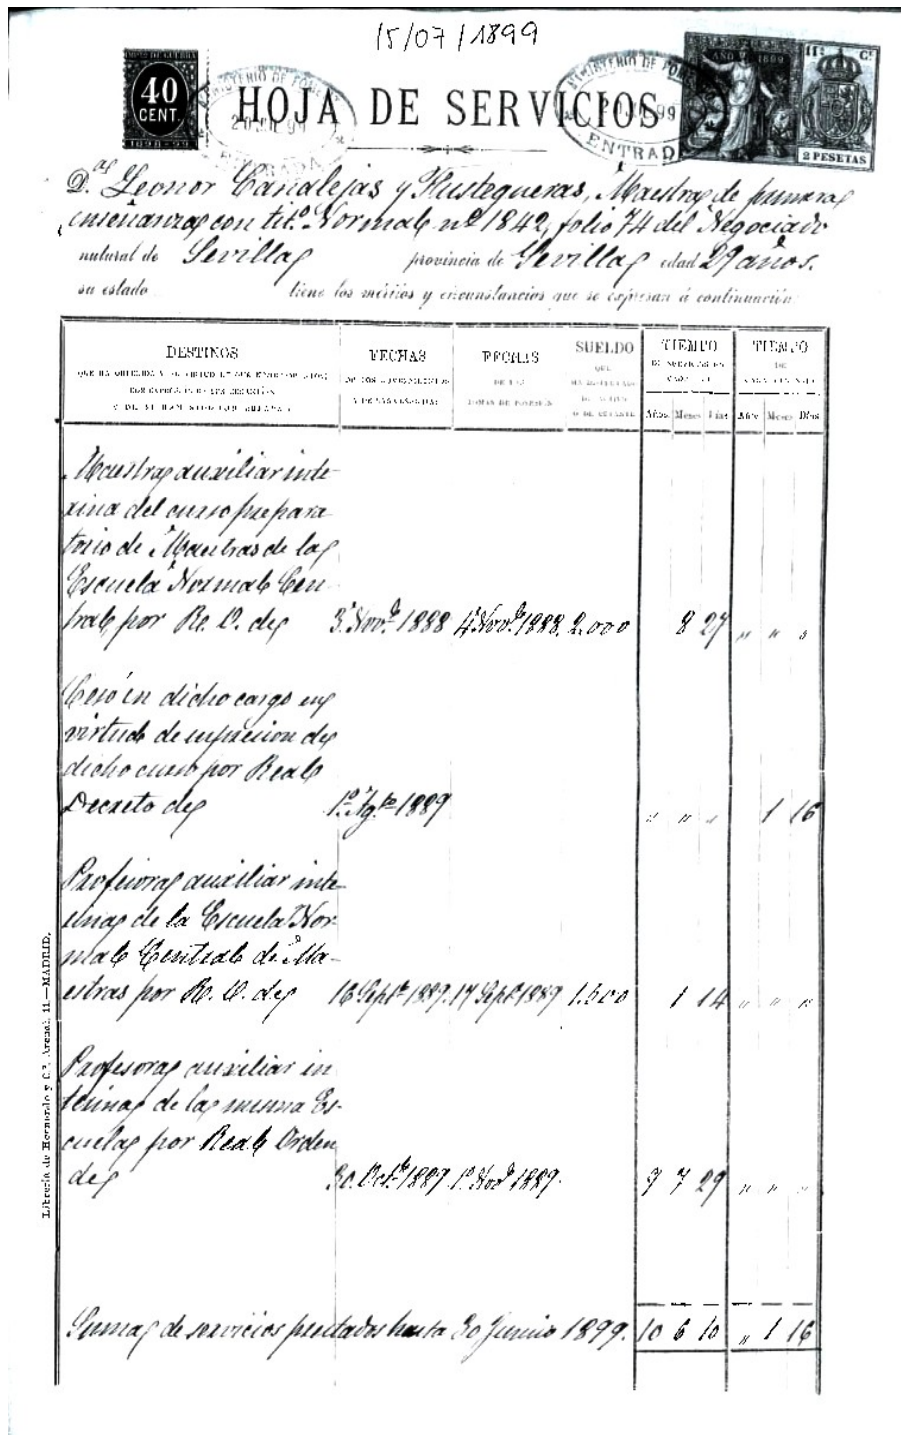 15/07/1899
40
CENT.
1898-99
MINISTERIO DE FOMENTO
20 JUL 99
ENTRADA
HOJA DE SERVICIOS
MINISTERIO DE FOMENTO
99
ENTRADA
AÑO 1899
11ª Cª
2 PESETAS
D.ª Leonor Canalejas y Fustegueras, Maestra de primera
enseñanza con tit.º Normal nº 1842, folio 74 del Negociado
natural de Sevilla provincia de Sevilla edad 29 años.
su estado tiene los méritos y circunstancias que se expresan á continuación
DESTINOS
QUE HA OBTENIDO
FECHAS
DE LOS NOMBRAMIENTOS
FECHAS
DE LAS
TOMAS DE POSESIÓN
SUELDO
QUE
HA DISFRUTADO
DE ACTIVO
Ó DE CESANTE
TIEMPO
DE SERVICIOS EN
CADA
Años Meses Días
TIEMPO
DE
CADA CESANTÍA
Años Meses Días
Maestra auxiliar inte-
rina del curso prepara
torio de Maestras de la
Escuela Normal Cen-
tral, por R. O. de 3 Nov.e 1888 4 Nov.e 1888 2.000 8 27 " " "
Cesó en dicho cargo en
virtud de supresion de
dicho curso por Real
Decreto de 1º Ag.to 1889 " " " 1 16
Profesora auxiliar inte-
rina de la Escuela Nor-
mal Central de Ma-
estras por R. O. de 16 Sept.e 1889. 17 Sept.e 1889 1.500 1 14 " " "
Profesora auxiliar in
terina de la misma Es-
cuela por Real Orden
de 30. Oct.e 1889 1º Nov.e 1889. 9 7 29 " " "
Suma de servicios prestados hasta 30 Junio 1899. 10 6 10 " 1 16
Librería de Hernando y C.ª, Arenal, 11.—MADRID.